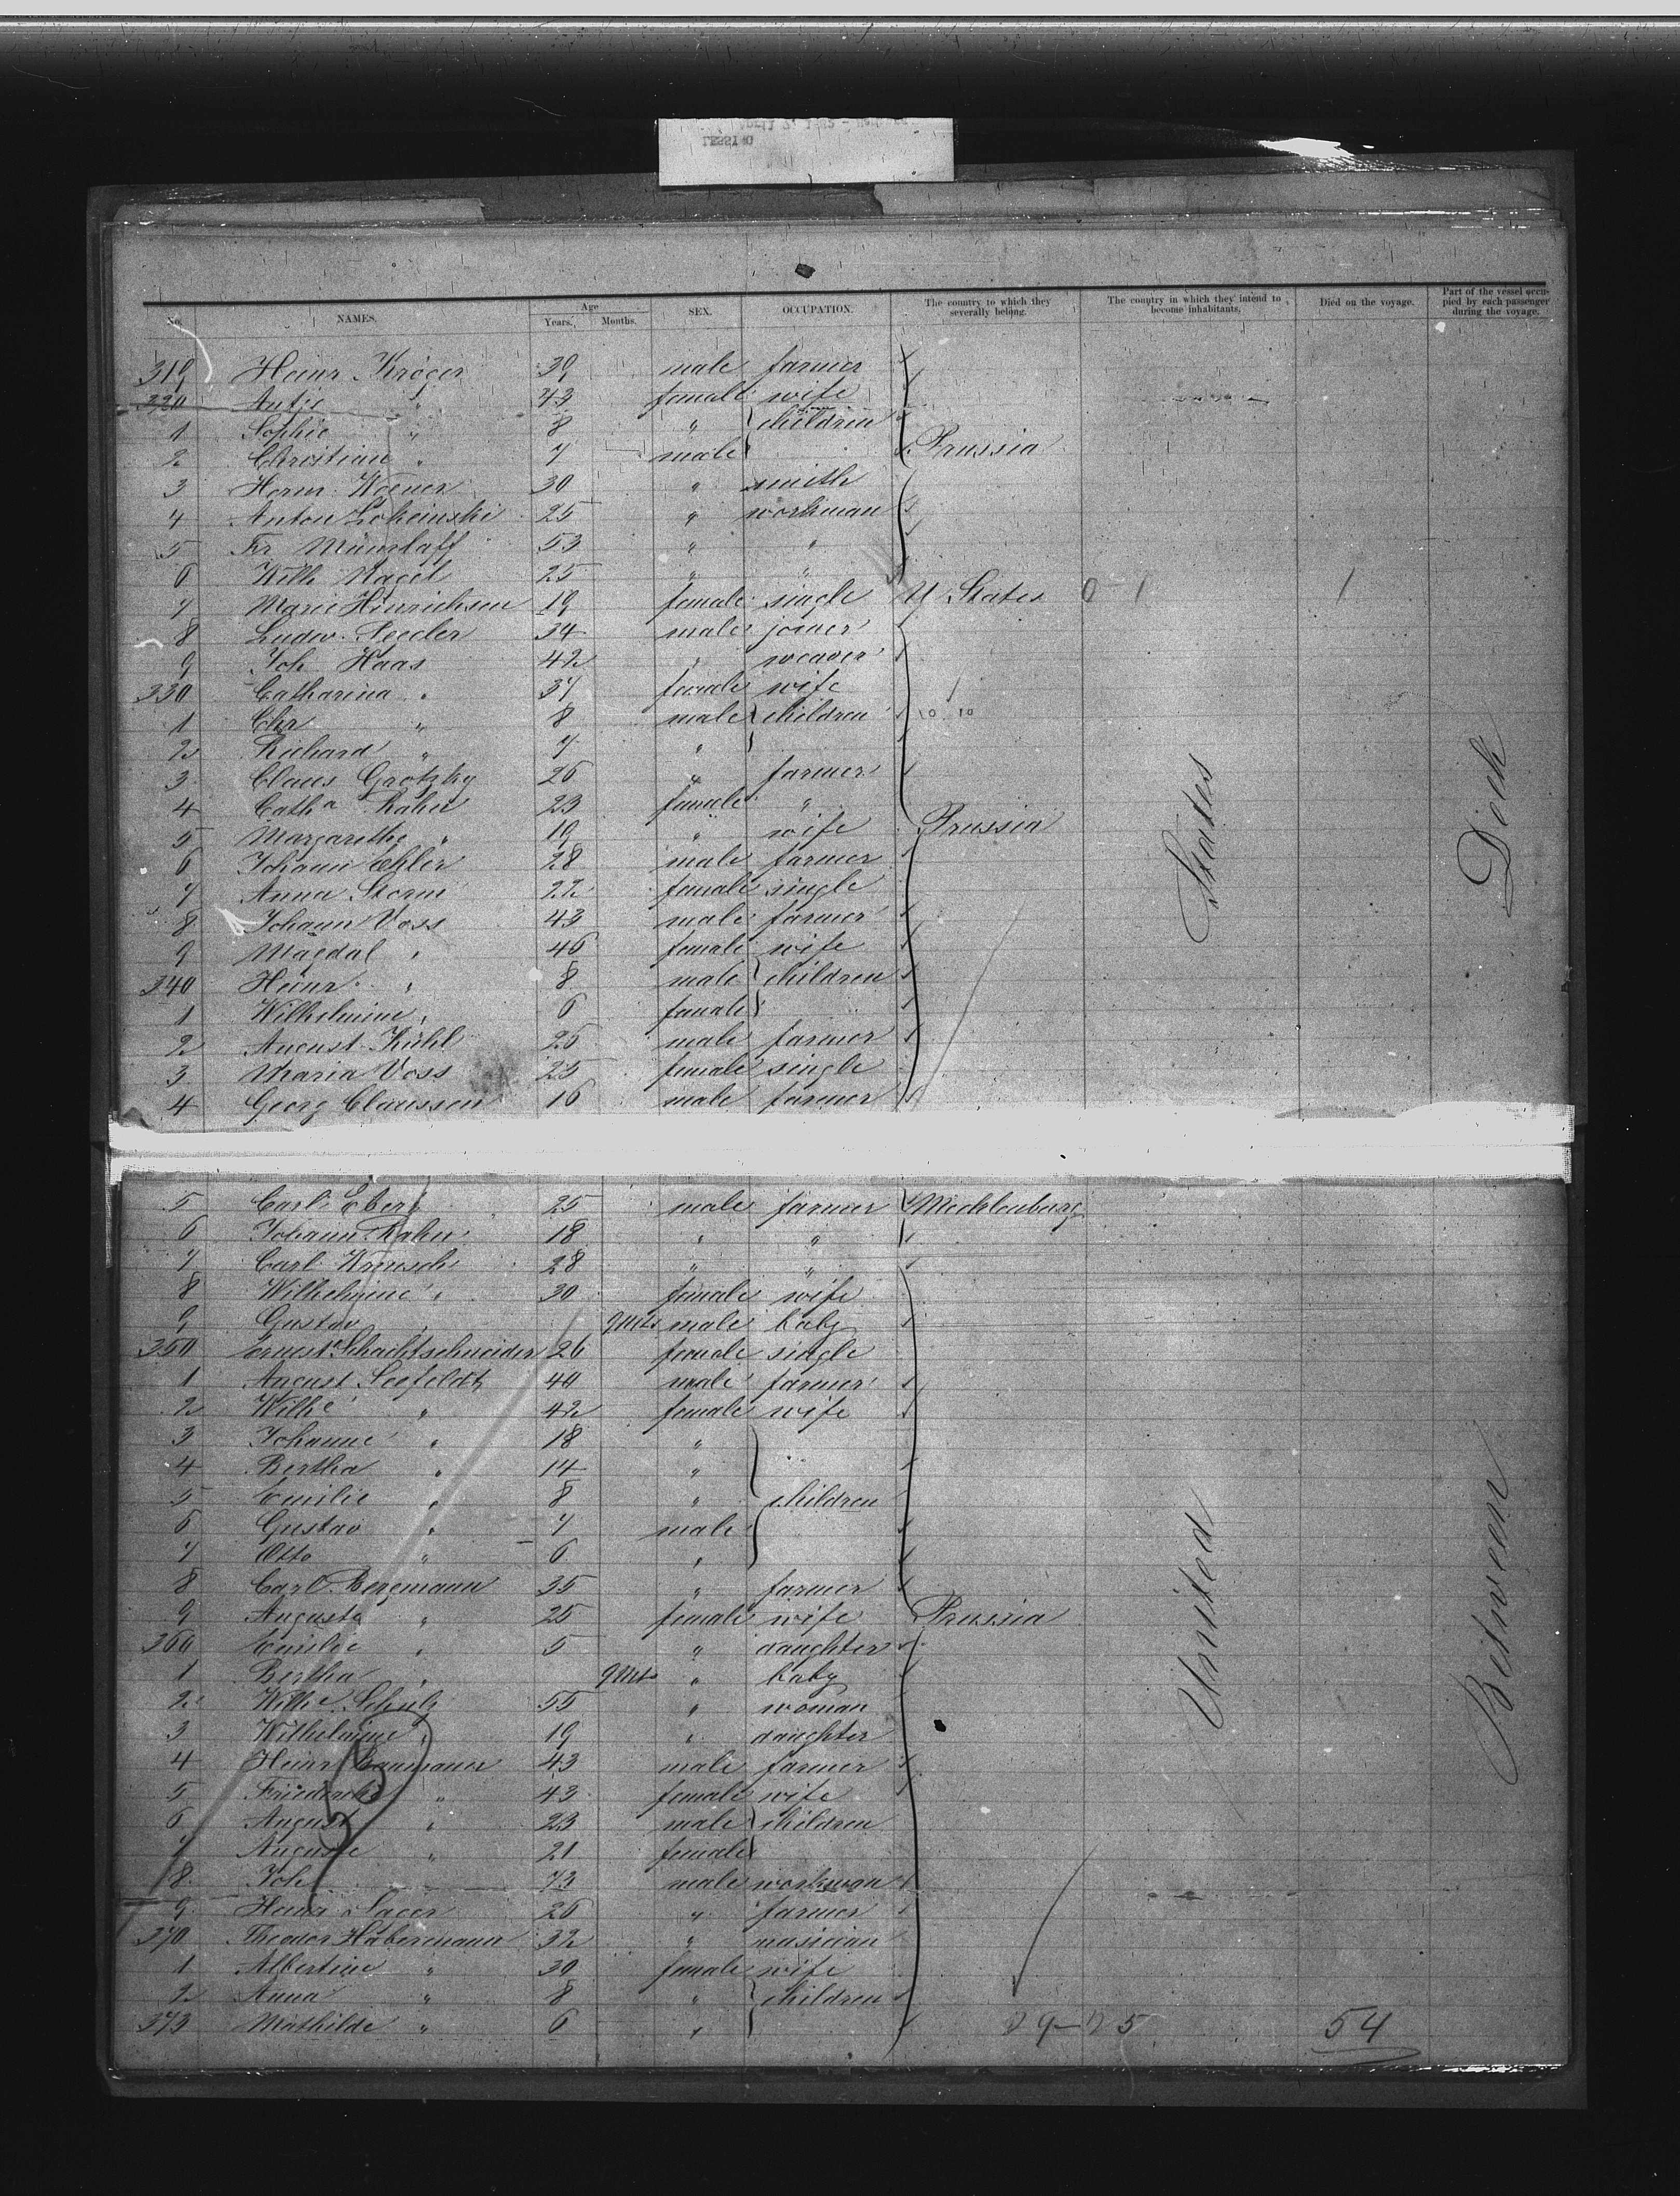 LESSING
No. NAMES. Age Years. Months. SEX. OCCUPATION. The country to which they severally belong. The country in which they intend to become inhabitants. Died on the voyage. Part of the vessel occupied by each passenger during the voyage.
319 Heinr Kröger 39 male farmer
320 Antje " 43 female wife
1 Sophie " 8 " children
2 Christian " 7 male Prussia
3 Herm. 30 " smith
4 Anton 25 " workman
5 Fr 53 " "
6 Wilh Nagel 25 " "
7 Marie Hinrichsen 19 female single U States 0-1 1
8 Ludw. 34 male joiner
9 Joh Haas 42 " weaver
330 Catharina " 37 female wife
1 Chr " 8 male children
2 Richard " 7 "
3 Claus Grotzky 26 " farmer
4 Catha Rahn 23 female "
5 Margarethe " 19 " wife Prussia
6 Johann Ehler 28 male farmer
7 Anna Storm 22 female single
8 Johann Voss 43 male farmer
9 Magdal " 46 female wife
340 Heinr. " 8 male children
1 Wilhelmine " 6 female
2 August Kühl 26 male farmer
3 Maria Voss 25 female single
4 Georg Claussen 16 male farmer
5 Carl Ebert 25 male farmer Mecklenburg
6 Johann Rahn 18 " "
7 Carl 28 " "
8 Wilhelmine " 30 female wife
9 Gustav " 9 Mts male baby
350 Ernest Schachtschneider 26 female single
1 August Seefeldt 40 male farmer
2 Wilhe " 42 female wife
3 Johanne " 18 "
4 Bertha " 14 "
5 Emilie " 8 " children
6 Gustav " 7 male
7 Otto " 6 "
8 Carl Bergmann 35 " farmer
9 Auguste " 25 female wife Prussia
360 Emilie " 5 " daughter
1 Bertha " 9 Mts " baby
2 Wilhe Schulz 55 " woman
3 Wilhelmine " 19 " daughter
4 Heinr 43 male farmer
5 Friedericke " 43 female wife
6 August " 23 male children
7 Auguste " 21 female
8 Joh " 73 male workman
9 Heinr Sager 26 " farmer
370 Theodor Habermann 32 " musician
1 Albertine " 30 female wife
2 Anna " 8 " children
373 Mathilde " 6 "
United States
Between Deck
29-25 54